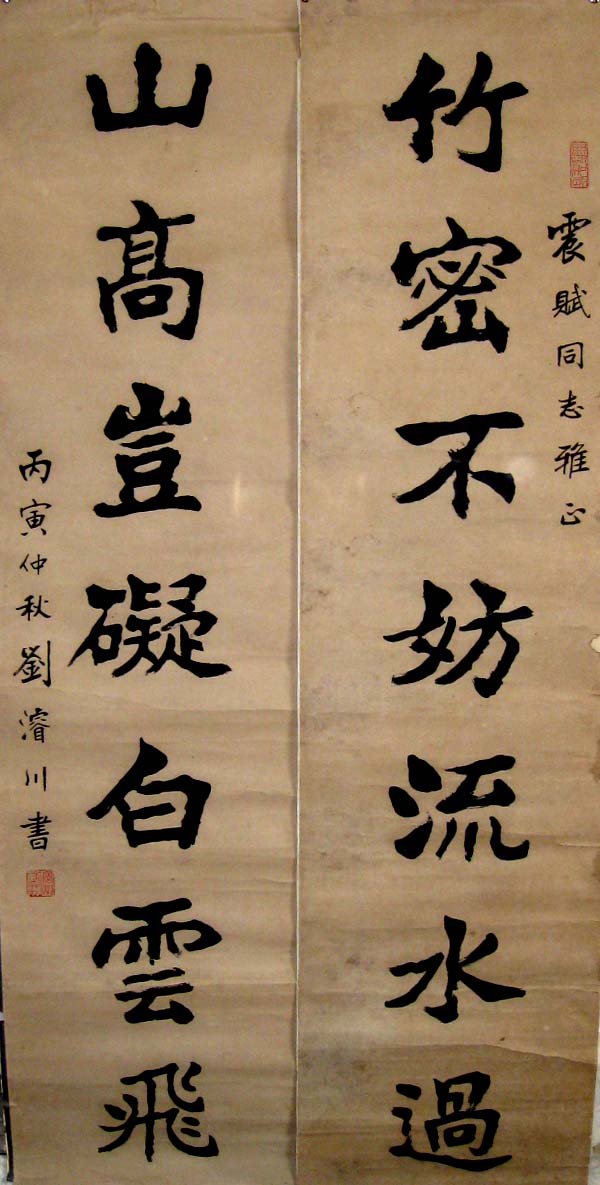 震賦同志雅正
竹密不妨流水過
山高豈礙白雲飛
丙寅仲秋劉濬川書